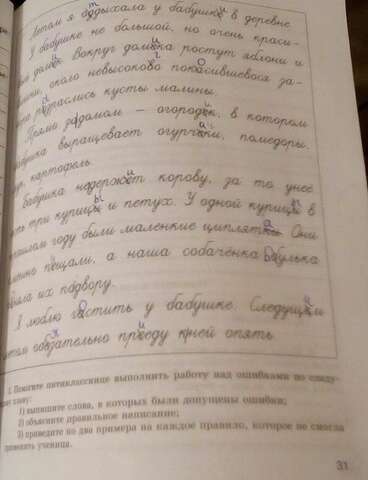 Летом я оддыхала у бабушке в деревне
У бабушке не большой, но очень краси-
дом. Вокруг домика ростут яблони и
около невысоково покасившевося за-
рослись кусты малины.
Прямо задомом – огородик, в котором
бабушка выращевает огурчики, помедоры,
картофель.
Бабушка недержит корову, за то унеё
три курицы и петух. У одной курицы в
году были маленкие циплятки. Они
пещали, а наша собачёнка булька
их подвору.
Я люблю гастить у бабушке. Следущим
летом обезательно прееду кней опять
1. Помогите пятикласснице выполнить работу над ошибками по следу-
плану:
1) выпишите слова, в которых были допущены ошибки;
2) объясните правильное написание;
3) приведите по два примера на каждое правило, которое не смогла
применить ученица.
31